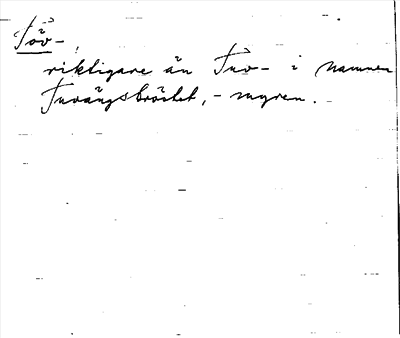 Töv-,
riktigare än Tuv- i namnen
Tuvängsbrötet, -myren.